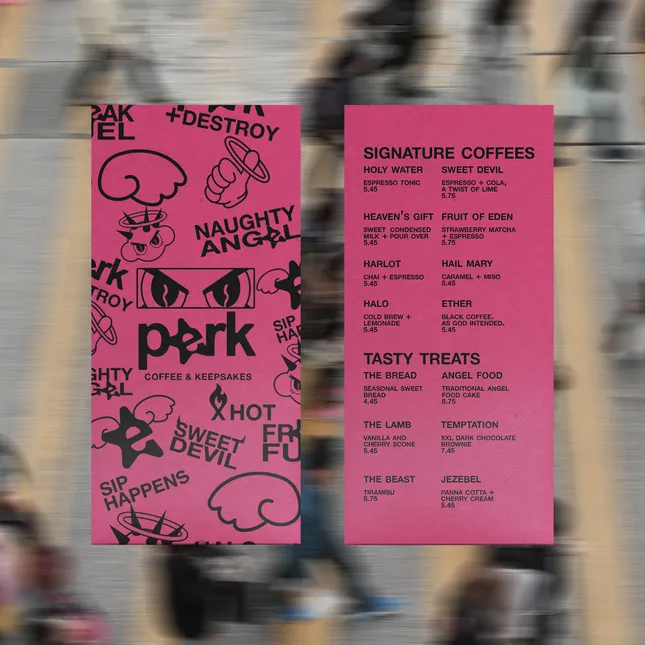 EAK
EL
+DESTROY
NAUGHTY
ANGEL
erk
TROY
perk
COFFEE & KEEPSAKES
SIP
HA
GHTY
GEL
HOT
SWEET
DEVIL
FR
FU
SIP
HAPPENS
SIGNATURE COFFEES
HOLY WATER
ESPRESSO TONIC
5.45
SWEET DEVIL
ESPRESSO + COLA,
A TWIST OF LIME
5.75
HEAVEN'S GIFT
SWEET CONDENSED
MILK + POUR OVER
5.45
FRUIT OF EDEN
STRAWBERRY MATCHA
+ ESPRESSO
5.75
HARLOT
CHAI + ESPRESSO
5.45
HAIL MARY
CARAMEL + MISO
5.45
HALO
COLD BREW +
LEMONADE
5.45
ETHER
BLACK COFFEE.
AS GOD INTENDED.
5.45
TASTY TREATS
THE BREAD
SEASONAL SWEET
BREAD
4.45
ANGEL FOOD
TRADITIONAL ANGEL
FOOD CAKE
6.75
THE LAMB
VANILLA AND
CHERRY SCONE
5.45
TEMPTATION
XXL DARK CHOCOLATE
BROWNIE
7.45
THE BEAST
TIRAMISU
6.75
JEZEBEL
PANNA COTTA +
CHERRY CREAM
5.45